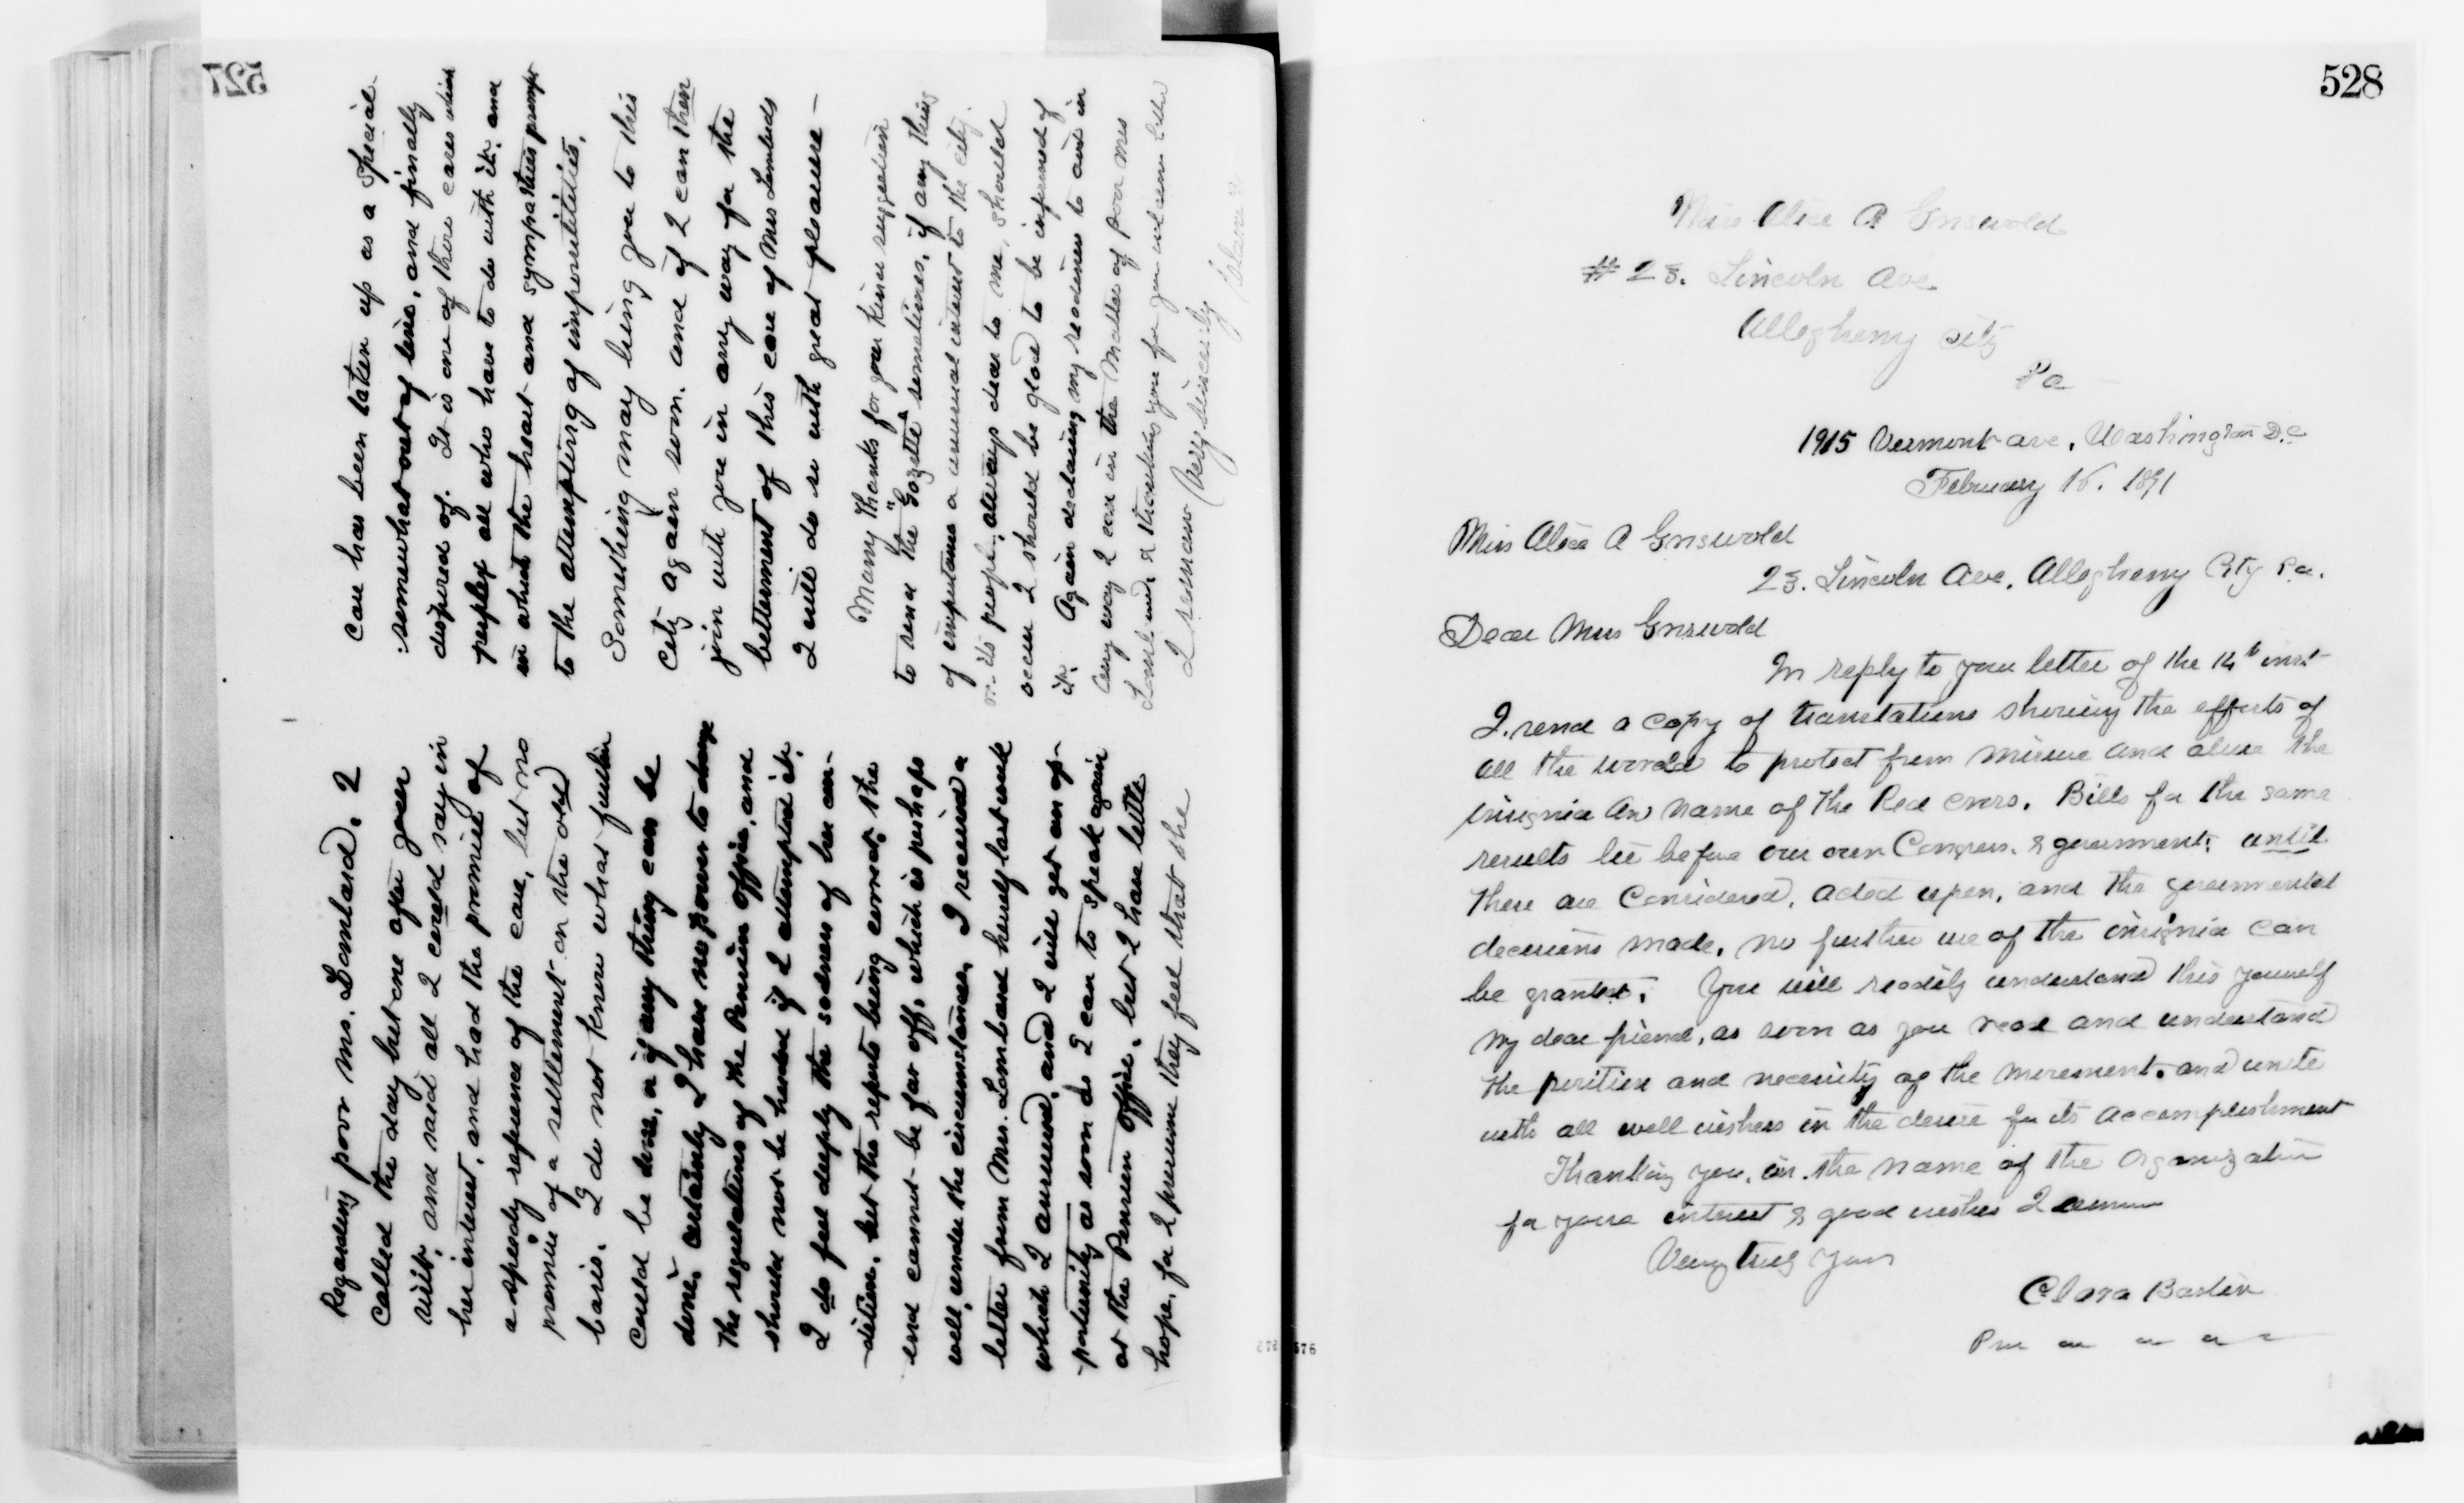 527
Regarding poor Mrs. Lombard. I
called the day but one after your
visit, and said all I could say in
her interest, and had the promise of
a speedy reference of the case, but no
promise of a settlement on the old
basis. I do not know what further
could be done, or if any thing can be
done. Certainly I have no power to change
the regulations of the Pension office, and
should not be heeded if I attempted it.
I do feel deeply the sadness of her con-
dition, but the reports being correct, the
end cannot be far off, which is perhaps
well, under the circumstances. I received a
letter from Mrs. Lombard herself last week
which I answered, and I will get an op-
portunity as soon as I can to speak again
at the Pension office, but I have little
hope, for I presume they feel that she
case has been taken up as a special
somewhat out of line, and finally
disposed of. It is one of those cases which
perplex all who have to do with it, and
in which the heart and sympathies prompt
to the attempting of impossibilities.
Something may bring you to this
City again soon, and if I can then
join with you in any way for the
betterment of this case of Mrs Lombards
I will do so with great pleasure -
Many thanks for your kind suggestion
to send the "Gazette" sometimes, if any thing
of importance or unusual interest to the city,
or its people, always dear to me, should
occur I should be glad to be informed of
it. Again declaring my readiness to aid in
any way I can in the matter of poor Mrs
Lombard, & thanking you for your welcome letter
I remain Very sincerely
528
Miss Alice A Griswold
# 23. Lincoln Ave
Allegheny City
Pa -
1915 Vermont ave, Washington D.C
February 16. 1891
Miss Alice A Griswold
23. Lincoln Ave, Allegheny City Pa.
Dear Miss Griswold
In reply to your letter of the 14th inst
I send a copy of translations showing the efforts of
all the world to protect from misuse and abuse the
insignia and name of the Red Cross. Bills for the same
results lie before our own Congress & government; until
these are considered, acted upon, and the governmental
decisions made, no further use of the insignia can
be granted. You will readily understand this yourself
my dear friend, as soon as you read and understand
the position and necessity of the movement, and unite
with all well wishers in the desire for its accomplishment
Thanking you, in the name of the Organization
for your interest & good wishes I remain
Very truly yours
Clara Barton